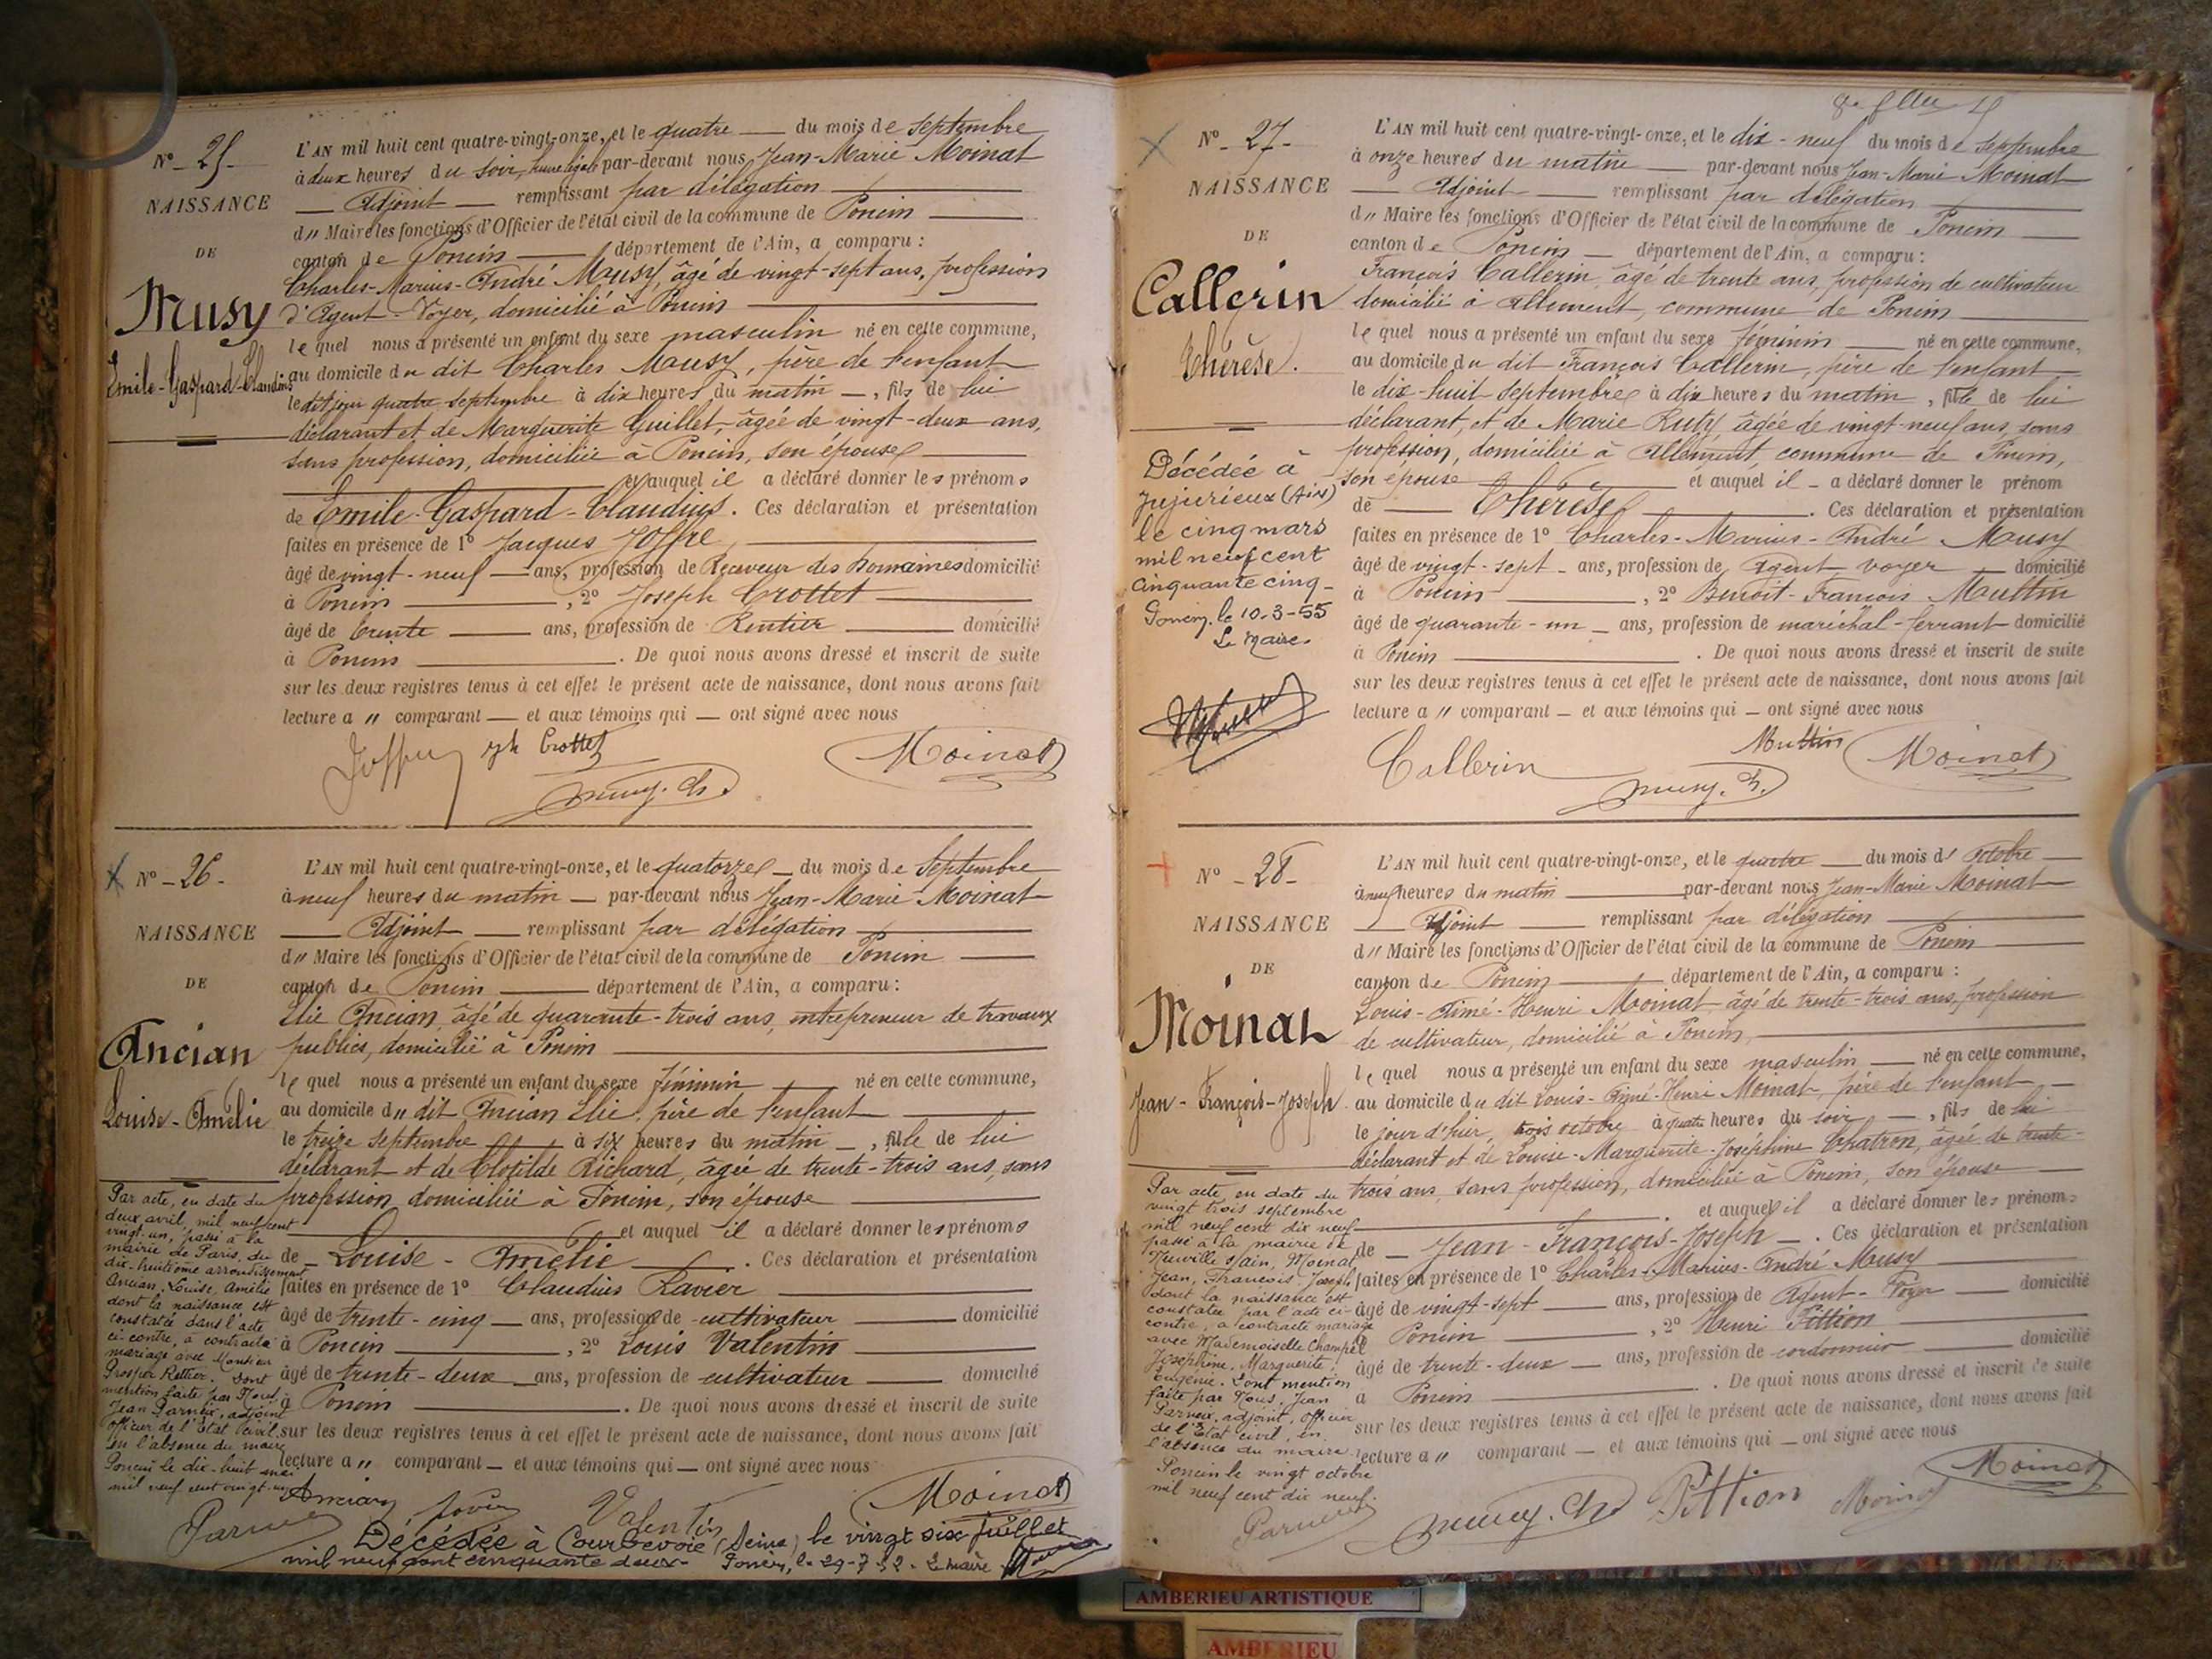 N° - 25 -
NAISSANCE
DE
Musy
Emile-Gaspard-Claudius
L'AN mil huit cent quatre-vingt-onze, et le quatre du mois de septembre
à deux heures du soir, heure légale par-devant nous Jean-Marie Moinat
Adjoint remplissant par délégation
d" Maire les fonctions d'Officier de l'état civil de la commune de Poncin
canton de Poncin département de l'Ain, a comparu :
Charles-Marius-André Musy, âgé de vingt-sept ans, profession
d'Agent-Voyer, domicilié à Poncin
le quel nous a présenté un enfant du sexe masculin né en cette commune,
au domicile du dit Charles Musy, père de l'enfant
le dit jour quatre septembre à dix heures du matin, fils de lui
déclarant et de Marguerite Guillet, âgée de vingt-deux ans,
sans profession, domiciliée à Poncin, son épouse
et auquel il a déclaré donner les prénoms
de Emile-Gaspard-Claudius. Ces déclaration et présentation
faites en présence de 1° Jacques Joffre
âgé de vingt-neuf ans, profession de Receveur des Domaines domicilié
à Poncin, 2° Joseph Crottet
âgé de trente ans, profession de Rentier domicilié
à Poncin. De quoi nous avons dressé et inscrit de suite
sur les deux registres tenus à cet effet le présent acte de naissance, dont nous avons fait
lecture a " comparant et aux témoins qui ont signé avec nous
Joffre jh Crottet Moinat
Musy. Ch.
N° - 26 -
NAISSANCE
DE
Ancian
Louise-Amélie
L'AN mil huit cent quatre-vingt-onze, et le quatorze du mois de Septembre
à neuf heures du matin par-devant nous Jean-Marie Moinat
Adjoint remplissant par délégation
d" Maire les fonctions d'Officier de l'état civil de la commune de Poncin
canton de Poncin département de l'Ain, a comparu :
Elie Ancian, âgé de quarante-trois ans, entrepreneur de travaux
publics, domicilié à Poncin
le quel nous a présenté un enfant du sexe féminin né en cette commune,
au domicile d" dit Ancian Elie, père de l'enfant
le treize septembre à six heures du matin, fille de lui
déclarant et de Clotilde Richard, âgée de trente-trois ans, sans
profession, domiciliée à Poncin, son épouse
et auquel il a déclaré donner les prénoms
de Louise-Amélie. Ces déclaration et présentation
faites en présence de 1° Claudius Ravier
âgé de trente-cinq ans, profession de cultivateur domicilié
à Poncin, 2° Louis Valentin
âgé de trente-deux ans, profession de cultivateur domicilié
à Poncin. De quoi nous avons dressé et inscrit de suite
sur les deux registres tenus à cet effet le présent acte de naissance, dont nous avons fait
lecture a " comparant et aux témoins qui ont signé avec nous
Par acte, en date du
deux avril, mil neuf cent
vingt-un, passé à la
mairie de Paris, du
dix-huitième arrondissement
Ancian, Louise, Amélie
dont la naissance est
constatée dans l'acte
ci-contre, a contracté
mariage avec Monsieur
Prosper Rettier. Dont
mention faite par Nous,
Jean Parneix, adjoint
officier de l'Etat Civil
en l'absence du maire
Poncin le dix-huit mai
mil neuf cent vingt-un
Ancian Valentin Moinat
Parneix
Décédée à Courbevoie (Seine) le vingt six juillet
mil neuf cent cinquante deux - Poncin, le 29-7-52. Le maire
N° - 27 -
NAISSANCE
DE
Callerin
Thérèse.
L'AN mil huit cent quatre-vingt-onze, et le dix-neuf du mois de septembre
à onze heures du matin par-devant nous Jean-Marie Moinat
Adjoint remplissant par délégation
d" Maire les fonctions d'Officier de l'état civil de la commune de Poncin
canton de Poncin département de l'Ain, a comparu :
François Callerin, âgé de trente ans, profession de cultivateur
domicilié à Allement, commune de Poncin
le quel nous a présenté un enfant du sexe féminin né en cette commune,
au domicile du dit François Callerin, père de l'enfant
le dix-huit septembre à dix heures du matin, fille de lui
déclarant, et de Marie Ruty âgée de vingt-neuf ans, sans
profession, domiciliée à Allement, commune de Poncin,
son épouse et auquel il a déclaré donner le prénom
de Thérèse. Ces déclaration et présentation
faites en présence de 1° Charles-Marius-André Musy
âgé de vingt-sept ans, profession de Agent voyer domicilié
à Poncin, 2° Benoit-François Muttin
âgé de quarante-un ans, profession de maréchal-ferrant domicilié
à Poncin. De quoi nous avons dressé et inscrit de suite
sur les deux registres tenus à cet effet le présent acte de naissance, dont nous avons fait
lecture a " comparant et aux témoins qui ont signé avec nous
Décédée à
Jujurieux (Ain)
le cinq mars
mil neuf cent
cinquante cinq -
Poncin, le 10-3-55
Le Maire.
Callerin Muttin Moinat
Musy. Ch.
N° - 28 -
NAISSANCE
DE
Moinat
Jean-François-Joseph
L'AN mil huit cent quatre-vingt-onze, et le quatre du mois d' Octobre
à neuf heures du matin par-devant nous Jean-Marie Moinat
Adjoint remplissant par délégation
d" Maire les fonctions d'Officier de l'état civil de la commune de Poncin
canton de Poncin département de l'Ain, a comparu :
Louis-Aimé-Henri Moinat, âgé de trente-trois ans, profession
de cultivateur, domicilié à Poncin,
le quel nous a présenté un enfant du sexe masculin né en cette commune,
au domicile du dit Louis-Aimé-Henri Moinat, père de l'enfant
le jour d'hier, trois octobre à quatre heures du soir, fils de lui
déclarant et de Louise-Marguerite-Joséphine Chatron, âgée de trente-
trois ans, sans profession, domiciliée à Poncin, son épouse
et auquel il a déclaré donner les prénoms
de Jean-François-Joseph. Ces déclaration et présentation
faites en présence de 1° Charles-Marius-André Musy
âgé de vingt-sept ans, profession de Agent-Voyer domicilié
à Poncin, 2° Henri Pittion
âgé de trente-deux ans, profession de cordonnier domicilié
à Poncin. De quoi nous avons dressé et inscrit de suite
sur les deux registres tenus à cet effet le présent acte de naissance, dont nous avons fait
lecture a " comparant et aux témoins qui ont signé avec nous
Par acte, en date du
vingt trois septembre
mil neuf cent dix neuf
passé à la mairie de
Neuville s/Ain, Moinat,
Jean, François, Joseph
dont la naissance est
constatée par l'acte ci-
contre, a contracté mariage
avec Mademoiselle Champel
Joséphine, Marguerite,
Eugénie. Dont mention
faite par Nous, Jean
Parneix, adjoint, officier
de l'Etat civil, en
l'absence du maire
Poncin le vingt octobre
mil neuf cent dix neuf.
Parneix Musy. Ch Pittion Moinat Moinat
AMBERIEU ARTISTIQUE
AMBERIEU